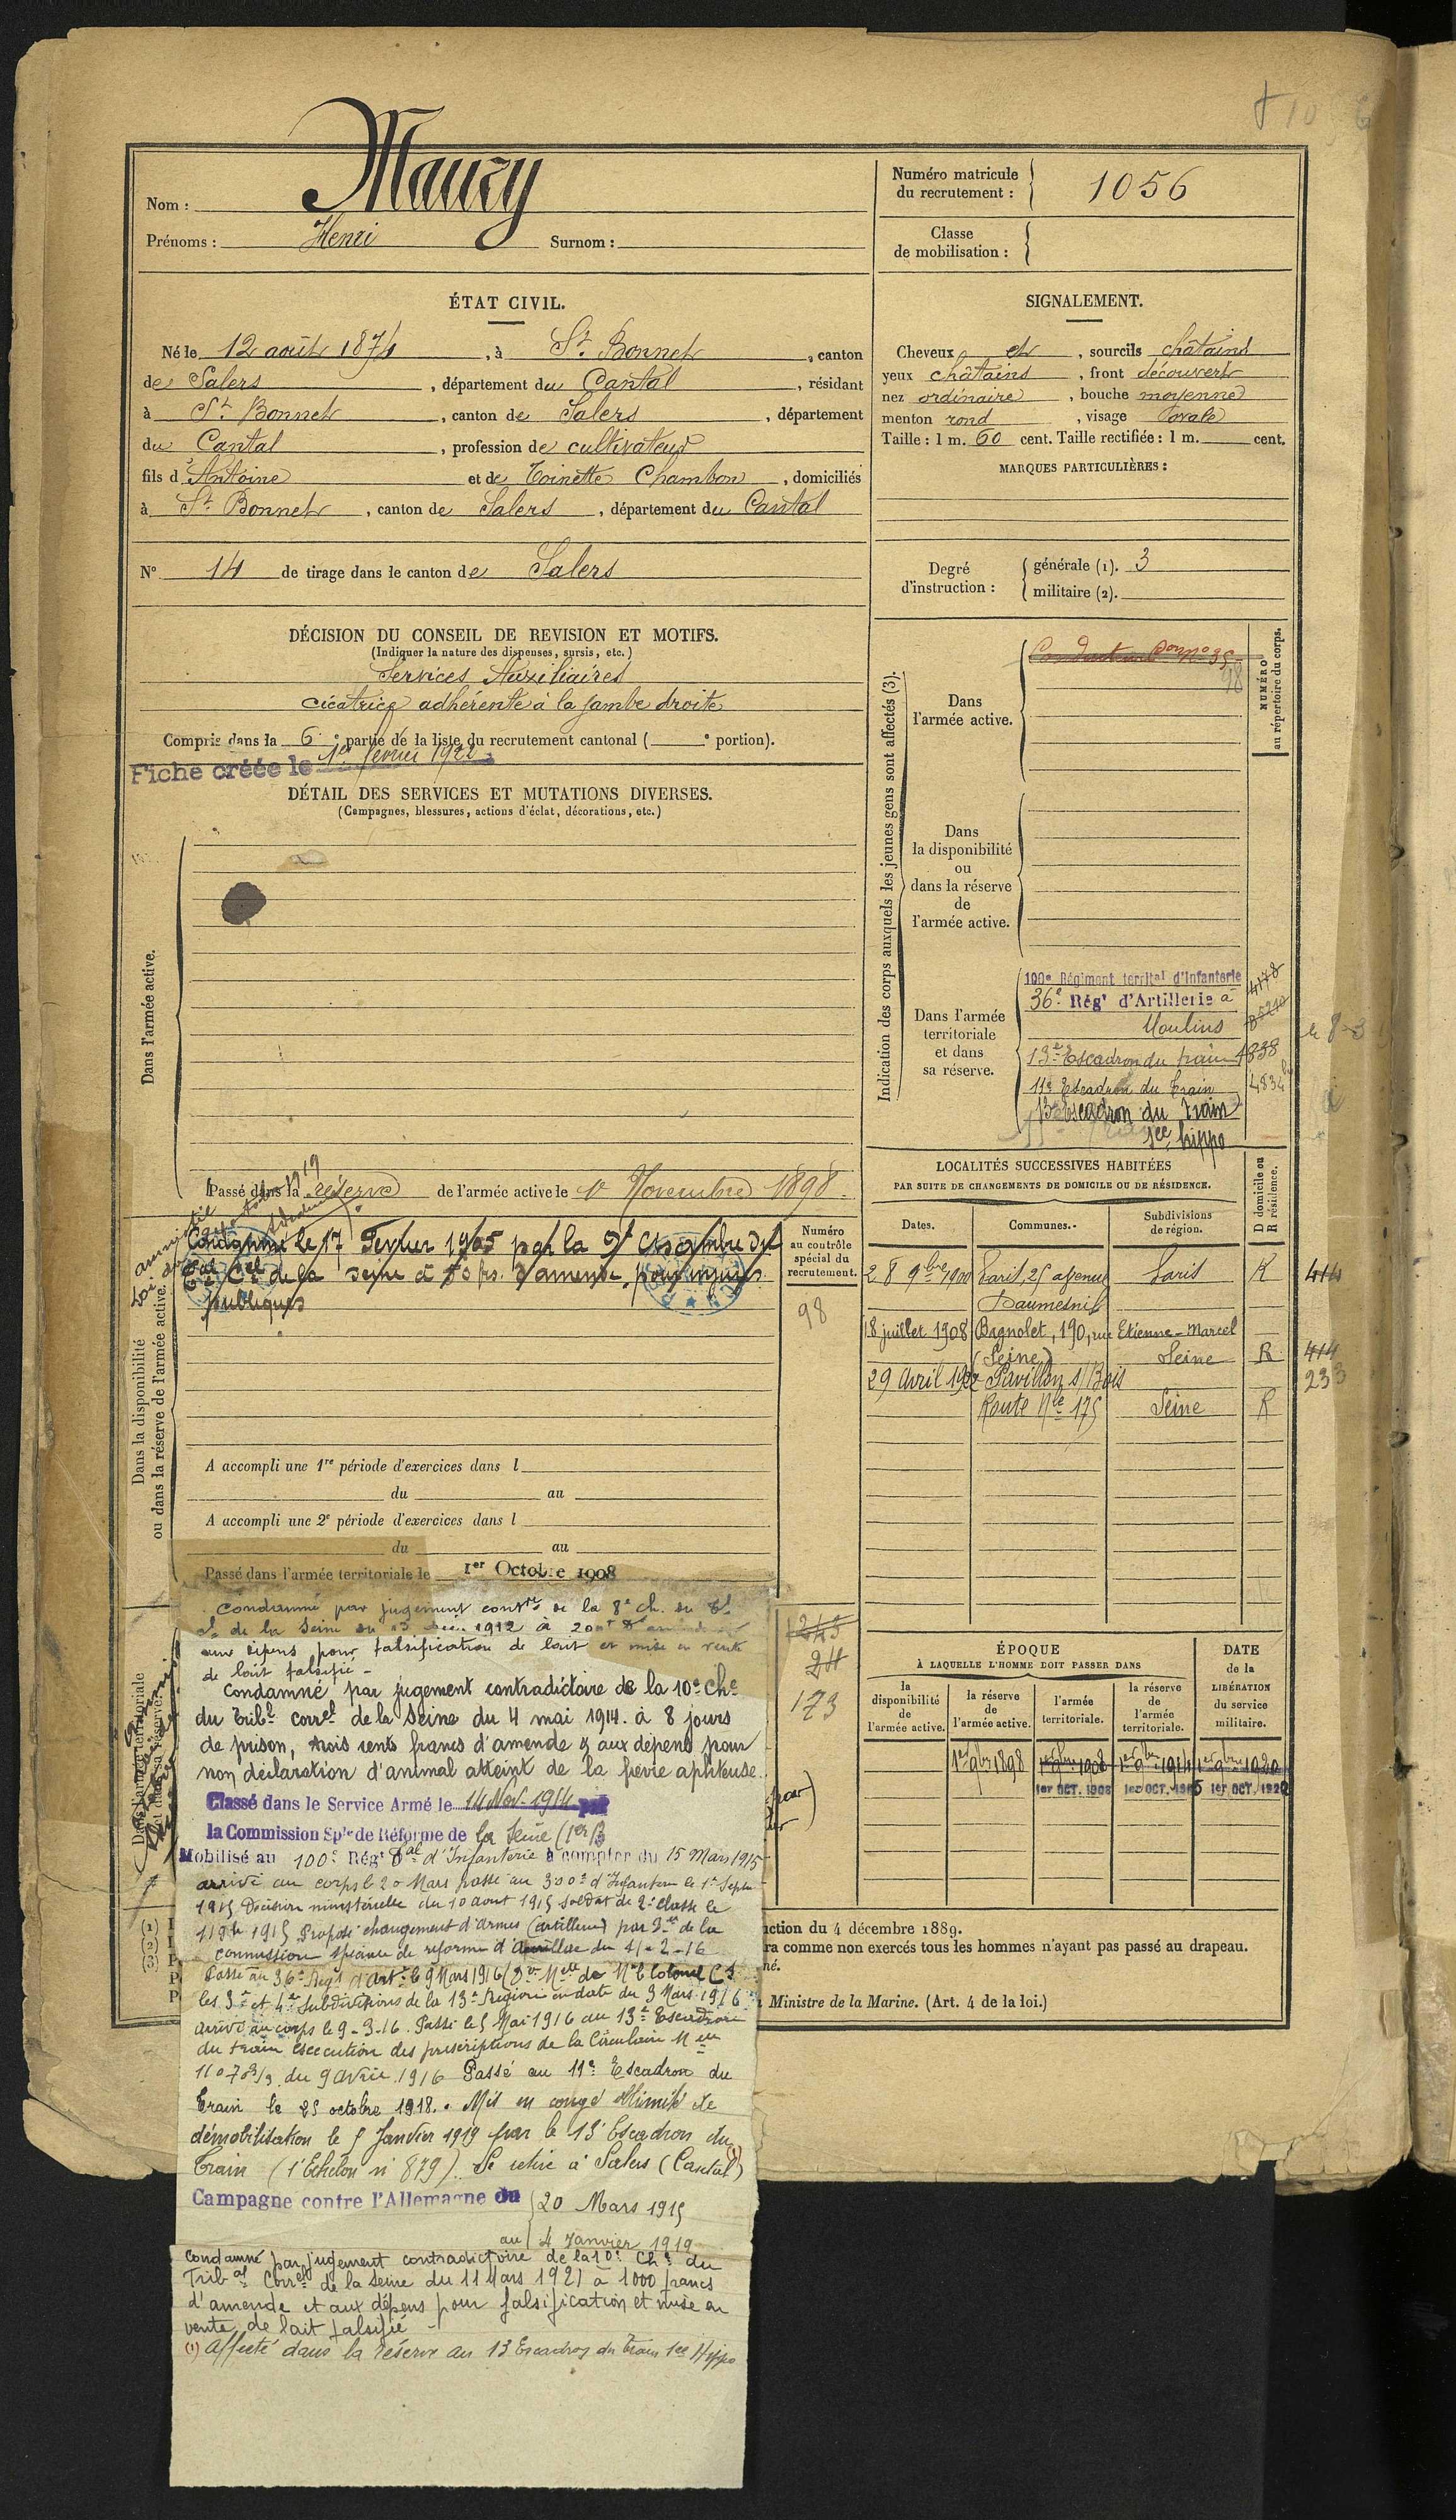 Nom : Maury
Prénoms : Henri Surnom :
Numéro matricule
du recrutement : 1056
Classe
de mobilisation :
ÉTAT CIVIL.
Né le 12 août 1874, à St. Bonnet, canton
de Salers, département du Cantal, résidant
à St. Bonnet, canton de Salers, département
du Cantal, profession de cultivateur
fils d'Antoine et de Toinette Chambon, domiciliés
à St. Bonnet, canton de Salers, département du Cantal
N° 14 de tirage dans le canton de Salers
SIGNALEMENT.
Cheveux et, sourcils châtains
yeux châtains, front découvert
nez ordinaire, bouche moyenne
menton rond, visage ovale
Taille : 1 m. 60 cent. Taille rectifiée : 1 m. cent.
MARQUES PARTICULIÈRES :
Degré
d'instruction :
générale (1). 3
militaire (2).
DÉCISION DU CONSEIL DE REVISION ET MOTIFS.
(Indiquer la nature des dispenses, sursis, etc.)
Services Auxiliaires
cicatrice adhérente à la jambe droite
Compris dans la 6e partie de la liste du recrutement cantonal ( e portion).
Fiche créée le 1er février 1922
DÉTAIL DES SERVICES ET MUTATIONS DIVERSES.
(Campagnes, blessures, actions d'éclat, décorations, etc.)
Dans l'armée active.
Passé dans la réserve de l'armée active le 1er Novembre 1898.
Indication des corps auxquels les jeunes gens sont affectés (3).
NUMÉRO
au répertoire du corps.
Dans
l'armée active.
98
Dans
la disponibilité
ou
dans la réserve
de
l'armée active.
Dans l'armée
territoriale
et dans
sa réserve.
100e Régiment territal d'Infanterie 4178
36e Régt d'Artillerie à
Moulins
13e Escadron du train 4838
11e Escadron du Train 4834
13e Escadron du Train
See hippo
LOCALITÉS SUCCESSIVES HABITÉES
PAR SUITE DE CHANGEMENTS DE DOMICILE OU DE RÉSIDENCE.
Dates. Communes. Subdivisions
de région. D domicile ou
R résidence.
28 9bre 1900 Paris, 25 avenue Paris R 414
Daumesnil
18 juillet 1908 Bagnolet, 190, rue Etienne-Marcel
(Seine) Seine R 414
29 Avril 1922 Pavillon s/Bois 233
Route Nle 175 Seine R
Dans la disponibilité
ou dans la réserve de l'armée active.
Condamné le 17 Février 1905 par la 9e Chambre du
Tal Cel de la Seine à 50 frs. d'amende, pour injures
publiques
Numéro
au contrôle
spécial du
recrutement.
98
A accompli une 1re période d'exercices dans l
du au
A accompli une 2e période d'exercices dans l
du au
Passé dans l'armée territoriale le 1er Octobre 1908
condamné par jugement contre de la 8e ch. du
de la Seine du 1912 à 200
aux dépens pour falsification de lait et mise en vente
de lait falsifié -
condamné par jugement contradictoire de la 10e Che
du Tribl correl de la Seine du 4 mai 1914. à 8 jours
de prison, trois cents francs d'amende & aux dépens pour
non déclaration d'animal atteint de la fièvre aphteuse.
Classé dans le Service Armé le 14 Nov. 1914 par
la Commission Sple de Réforme de la Seine
Mobilisé au 100e Régt Tal d'Infanterie à compter du 15 Mars 1915
arrivé au corps le 20 Mars passé au 300e d'Infanterie le 1er Septe
1915 Décision ministérielle du 10 aout 1915 soldat de 2e classe le
1915 Proposé changement d'armes (artillerie) par Don de la
commission spéciale de réforme d'Aurillac du 11-2-16
Passé au 36e Régt d'Artie le 9 Mars 1916 (Don Mlle de Mr le Colonel Ct
les 3e et 4e Subdivisions de la 13e Région en date du 3 Mars 1916
arrivé au corps le 9-3-16. Passé le 5 Mai 1916 au 13e Escadron
du train exécution des prescriptions de la Circulaire Mlle
du 9 Avril 1916 Passé au 11e Escadron du
Train le 25 octobre 1918. Mis en congé illimité de
démobilisation le 5 Janvier 1919 par le 13e Escadron du
Train (1' Echelon n° 879). Se retire à Salers (Cantal) (1)
Campagne contre l'Allemagne du 20 Mars 1915
au 4 Janvier 1919
condamné par jugement contradictoire de la 10e Ch. du
Tribal Correl de la Seine du 11 Mars 1921 à 1000 francs
d'amende et aux dépens pour falsification et mise en
vente de lait falsifié -
(1) Affecté dans la réserve au 13 Escadron du Train See Hippo
24
173
ÉPOQUE
À LAQUELLE L'HOMME DOIT PASSER DANS
DATE
de la
LIBÉRATION
du service
militaire.
la
disponibilité
de
l'armée active.
la réserve
de
l'armée active.
l'armée
territoriale.
la réserve
de
l'armée
territoriale.
1er 9bre 1898 1er 9bre 1908 1er 9bre 1914 1er 9bre 1920
1er OCT. 1908 1er OCT. 1915 1er OCT. 1920
ction du 4 décembre 1889.
ra comme non exercés tous les hommes n'ayant pas passé au drapeau.
né.
Ministre de la Marine. (Art. 4 de la loi.)